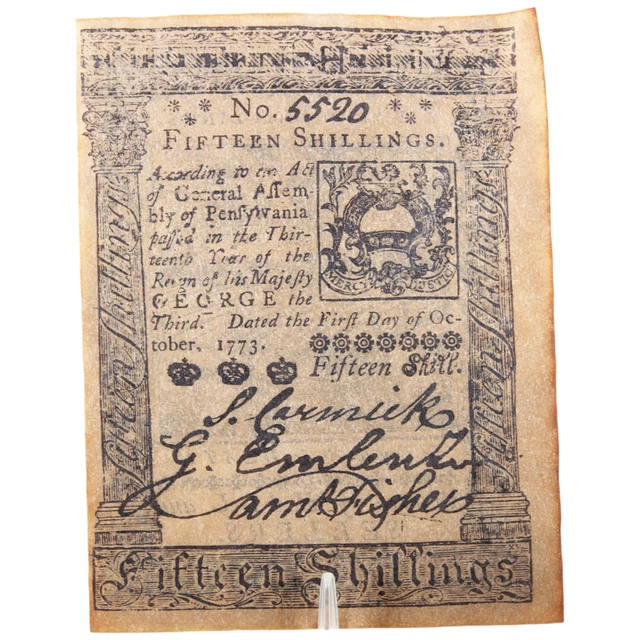 No. 5520
FIFTEEN SHILLINGS.
According to an Act
of General Aſſem-
bly of Penſylvania
paſſed in the Thir-
teenth Year of the
Reign of his Majeſty
GEORGE the
Third. Dated the Firſt Day of Oc-
tober, 1773.
Fifteen Shill.
MERCY JUSTICE
Fifteen Shillings
Fifteen Shillings
S. Cormick
G. Emlen
Sam Fisher
Fifteen Shillings